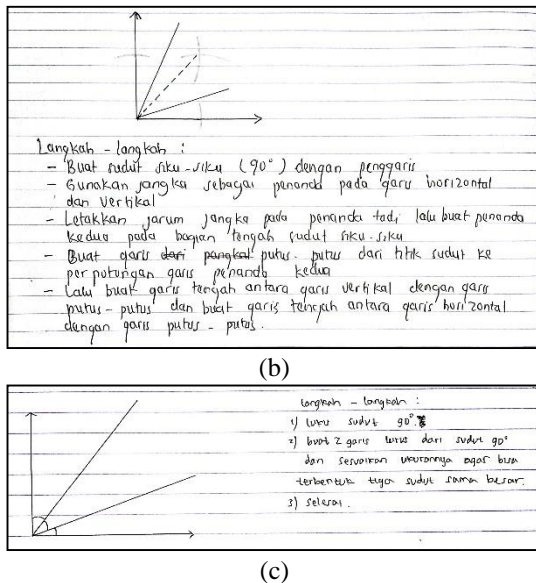 Langkah - langkah :
- Buat sudut siku-siku (90°) dengan penggaris
- Gunakan jangka sebagai penanda pada garis horizontal
dan vertikal
- Letakkan jarum jangka pada penanda tadi lalu buat penanda
kedua pada bagian tengah sudut siku-siku
- Buat garis dari pangkal putus-putus dari titik sudut ke
perputongan garis penanda kedua
- Lalu buat garis tengah antara garis vertikal dengan garis
putus-putus dan buat garis tengah antara garis horizontal
dengan garis putus-putus.
(b)
langkah - langkah :
1) lukis sudut 90°.
2) buat 2 garis lurus dari sudut 90°
dan sesuaikan ukurannya agar bisa
terbentuk tiga sudut sama besar.
3) selesai.
(c)